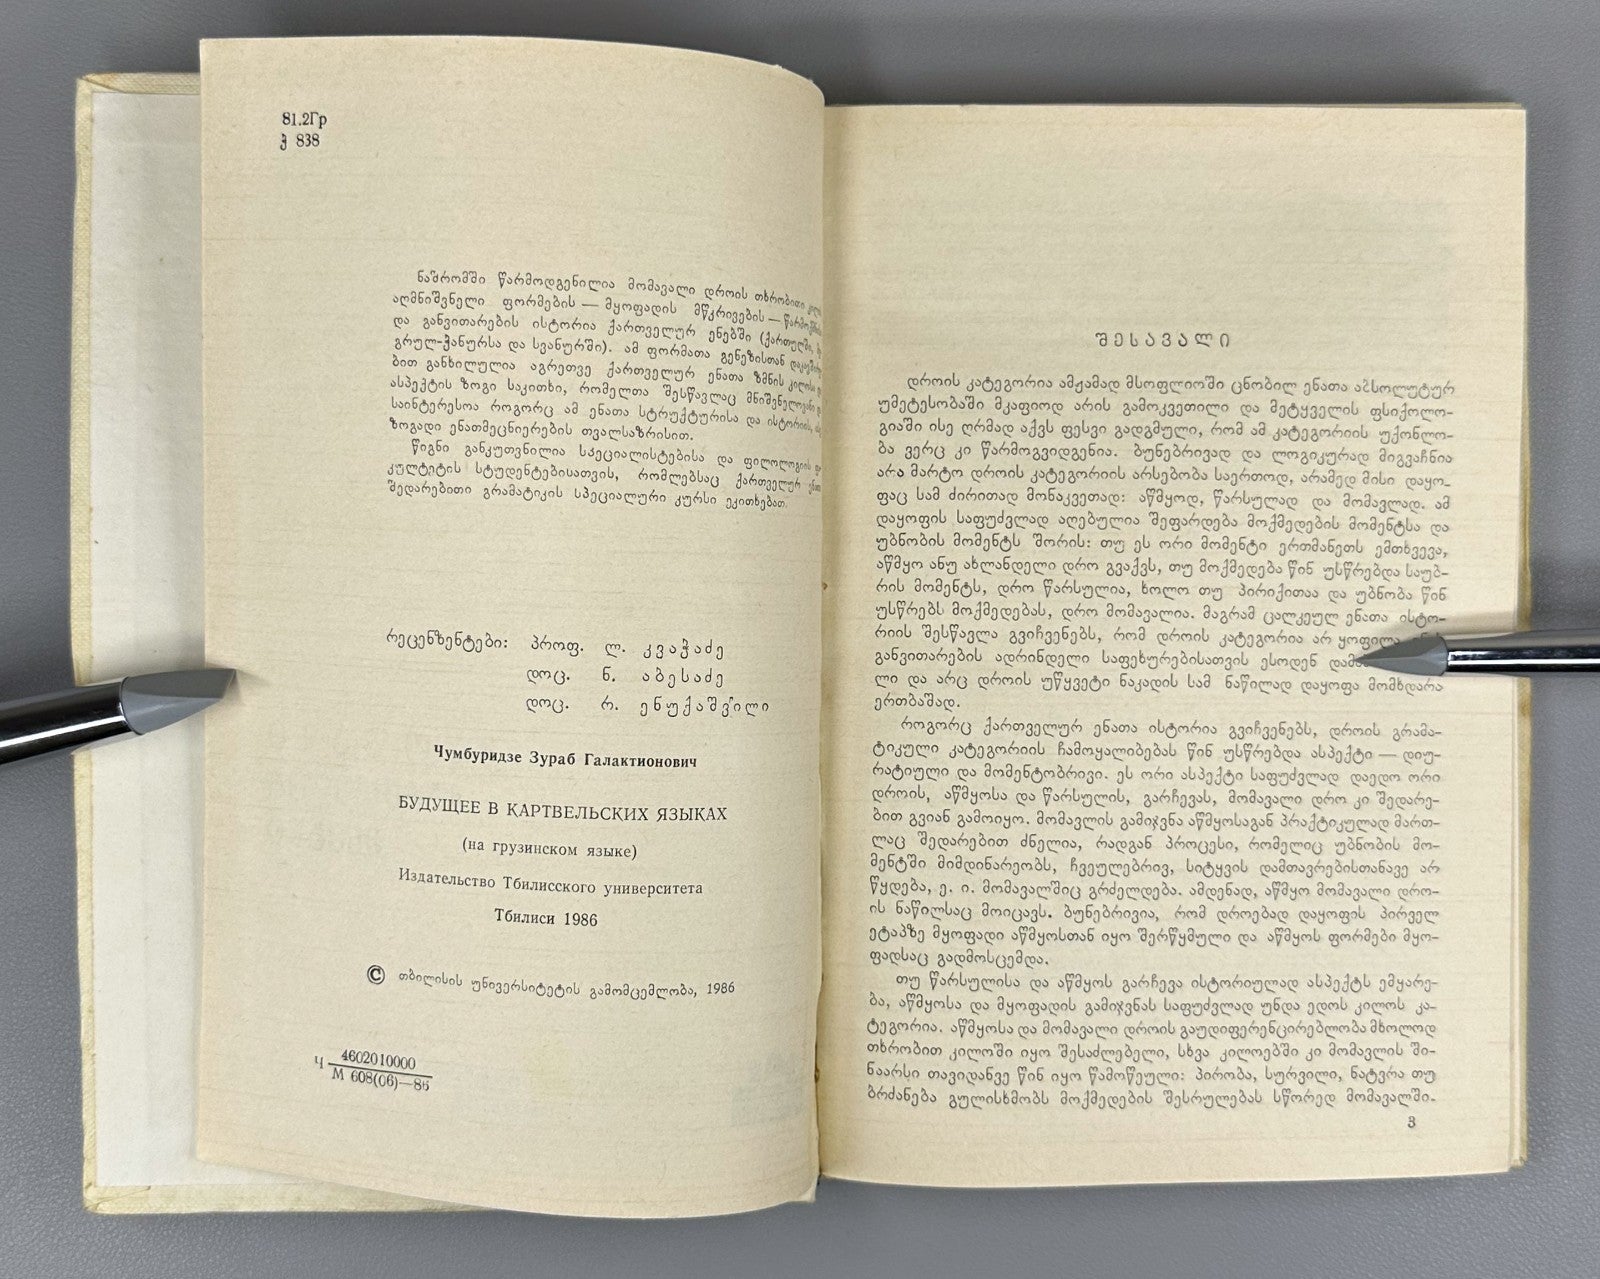 81.2Гр
ჭ 838
ნაშრომში წარმოდგენილია მომავალი დროის თხრობითი
აღმნიშვნელი ფორმების — მყოფადის მწკრივების —
და განვითარების ისტორია ქართველურ ენებში (ქართულში,
გრულ-ჭანურსა და სვანურში). ამ ფორმათა გენეზისთან
ბით განხილულია აგრეთვე ქართველურ ენათა ზმნის კილოსა
ასპექტის ზოგი საკითხი, რომელთა შესწავლაც მნიშვნელოვანი
საინტერესოა როგორც ამ ენათა სტრუქტურისა და ისტორიის,
ზოგადი ენათმეცნიერების თვალსაზრისით.
წიგნი განკუთვნილია სპეციალისტებისა და ფილოლოგიის
კულტეტის სტუდენტებისათვის, რომლებსაც ქართველურ
შედარებითი გრამატიკის სპეციალური კურსი ეკითხებათ.
რეცენზენტები: პროფ. ლ. კვაჭაძე
დოც. ნ. აბესაძე
დოც. რ. ენუქაშვილი
Чумбуридзе Зураб Галактионович
БУДУЩЕЕ В КАРТВЕЛЬСКИХ ЯЗЫКАХ
(на грузинском языке)
Издательство Тбилисского университета
Тбилиси 1986
© თბილისის უნივერსიტეტის გამომცემლობა, 1986
Ч 4602010000
М 608(06)—86
შესავალი
დროის კატეგორია ამჟამად მსოფლიოში ცნობილ ენათა აბსოლუტურ
უმეტესობაში მკაფიოდ არის გამოკვეთილი და მეტყველის ფსიქოლო-
გიაში ისე ღრმად აქვს ფესვი გადგმული, რომ ამ კატეგორიის უქონლო-
ბა ვერც კი წარმოგვიდგენია. ბუნებრივად და ლოგიკურად მიგვაჩნია
არა მარტო დროის კატეგორიის არსებობა საერთოდ, არამედ მისი დაყო-
ფაც სამ ძირითად მონაკვეთად: აწმყოდ, წარსულად და მომავლად. ამ
დაყოფის საფუძვლად აღებულია შეფარდება მოქმედების მომენტსა და
უბნობის მომენტს შორის: თუ ეს ორი მომენტი ერთმანეთს ემთხვევა,
აწმყო ანუ ახლანდელი დრო გვაქვს, თუ მოქმედება წინ უსწრებდა საუბ-
რის მომენტს, დრო წარსულია, ხოლო თუ პირიქითაა და უბნობა წინ
უსწრებს მოქმედებას, დრო მომავალია. მაგრამ ცალკეულ ენათა ისტო-
რიის შესწავლა გვიჩვენებს, რომ დროის კატეგორია არ ყოფილა
განვითარების ადრინდელი საფეხურებისათვის ესოდენ
ლი და არც დროის უწყვეტი ნაკადის სამ ნაწილად დაყოფა მომხდარა
ერთბაშად.
როგორც ქართველურ ენათა ისტორია გვიჩვენებს, დროის გრამა-
ტიკული კატეგორიის ჩამოყალიბებას წინ უსწრებდა ასპექტი — დიუ-
რატიული და მომენტობრივი. ეს ორი ასპექტი საფუძვლად დაედო ორი
დროის, აწმყოსა და წარსულის, გარჩევას, მომავალი დრო კი შედარე-
ბით გვიან გამოიყო. მომავლის გამიჯვნა აწმყოსაგან პრაქტიკულად მართ-
ლაც შედარებით ძნელია, რადგან პროცესი, რომელიც უბნობის მო-
მენტში მიმდინარეობს, ჩვეულებრივ, სიტყვის დამთავრებისთანავე არ
წყდება, ე. ი. მომავალშიც გრძელდება. ამდენად, აწმყო მომავალი დრო-
ის ნაწილსაც მოიცავს. ბუნებრივია, რომ დროებად დაყოფის პირველ
ეტაპზე მყოფადი აწმყოსთან იყო შერწყმული და აწმყოს ფორმები მყო-
ფადსაც გადმოსცემდა.
თუ წარსულისა და აწმყოს გარჩევა ისტორიულად ასპექტს ემყარე-
ბა, აწმყოსა და მყოფადის გამიჯვნას საფუძვლად უნდა ედოს კილოს კა-
ტეგორია. აწმყოსა და მომავალი დროის გაუდიფერენცირებლობა მხოლოდ
თხრობით კილოში იყო შესაძლებელი, სხვა კილოებში კი მომავლის ში-
ნაარსი თავიდანვე წინ იყო წამოწეული: პირობა, სურვილი, ნატვრა თუ
ბრძანება გულისხმობს მოქმედების შესრულებას სწორედ მომავალში.
3